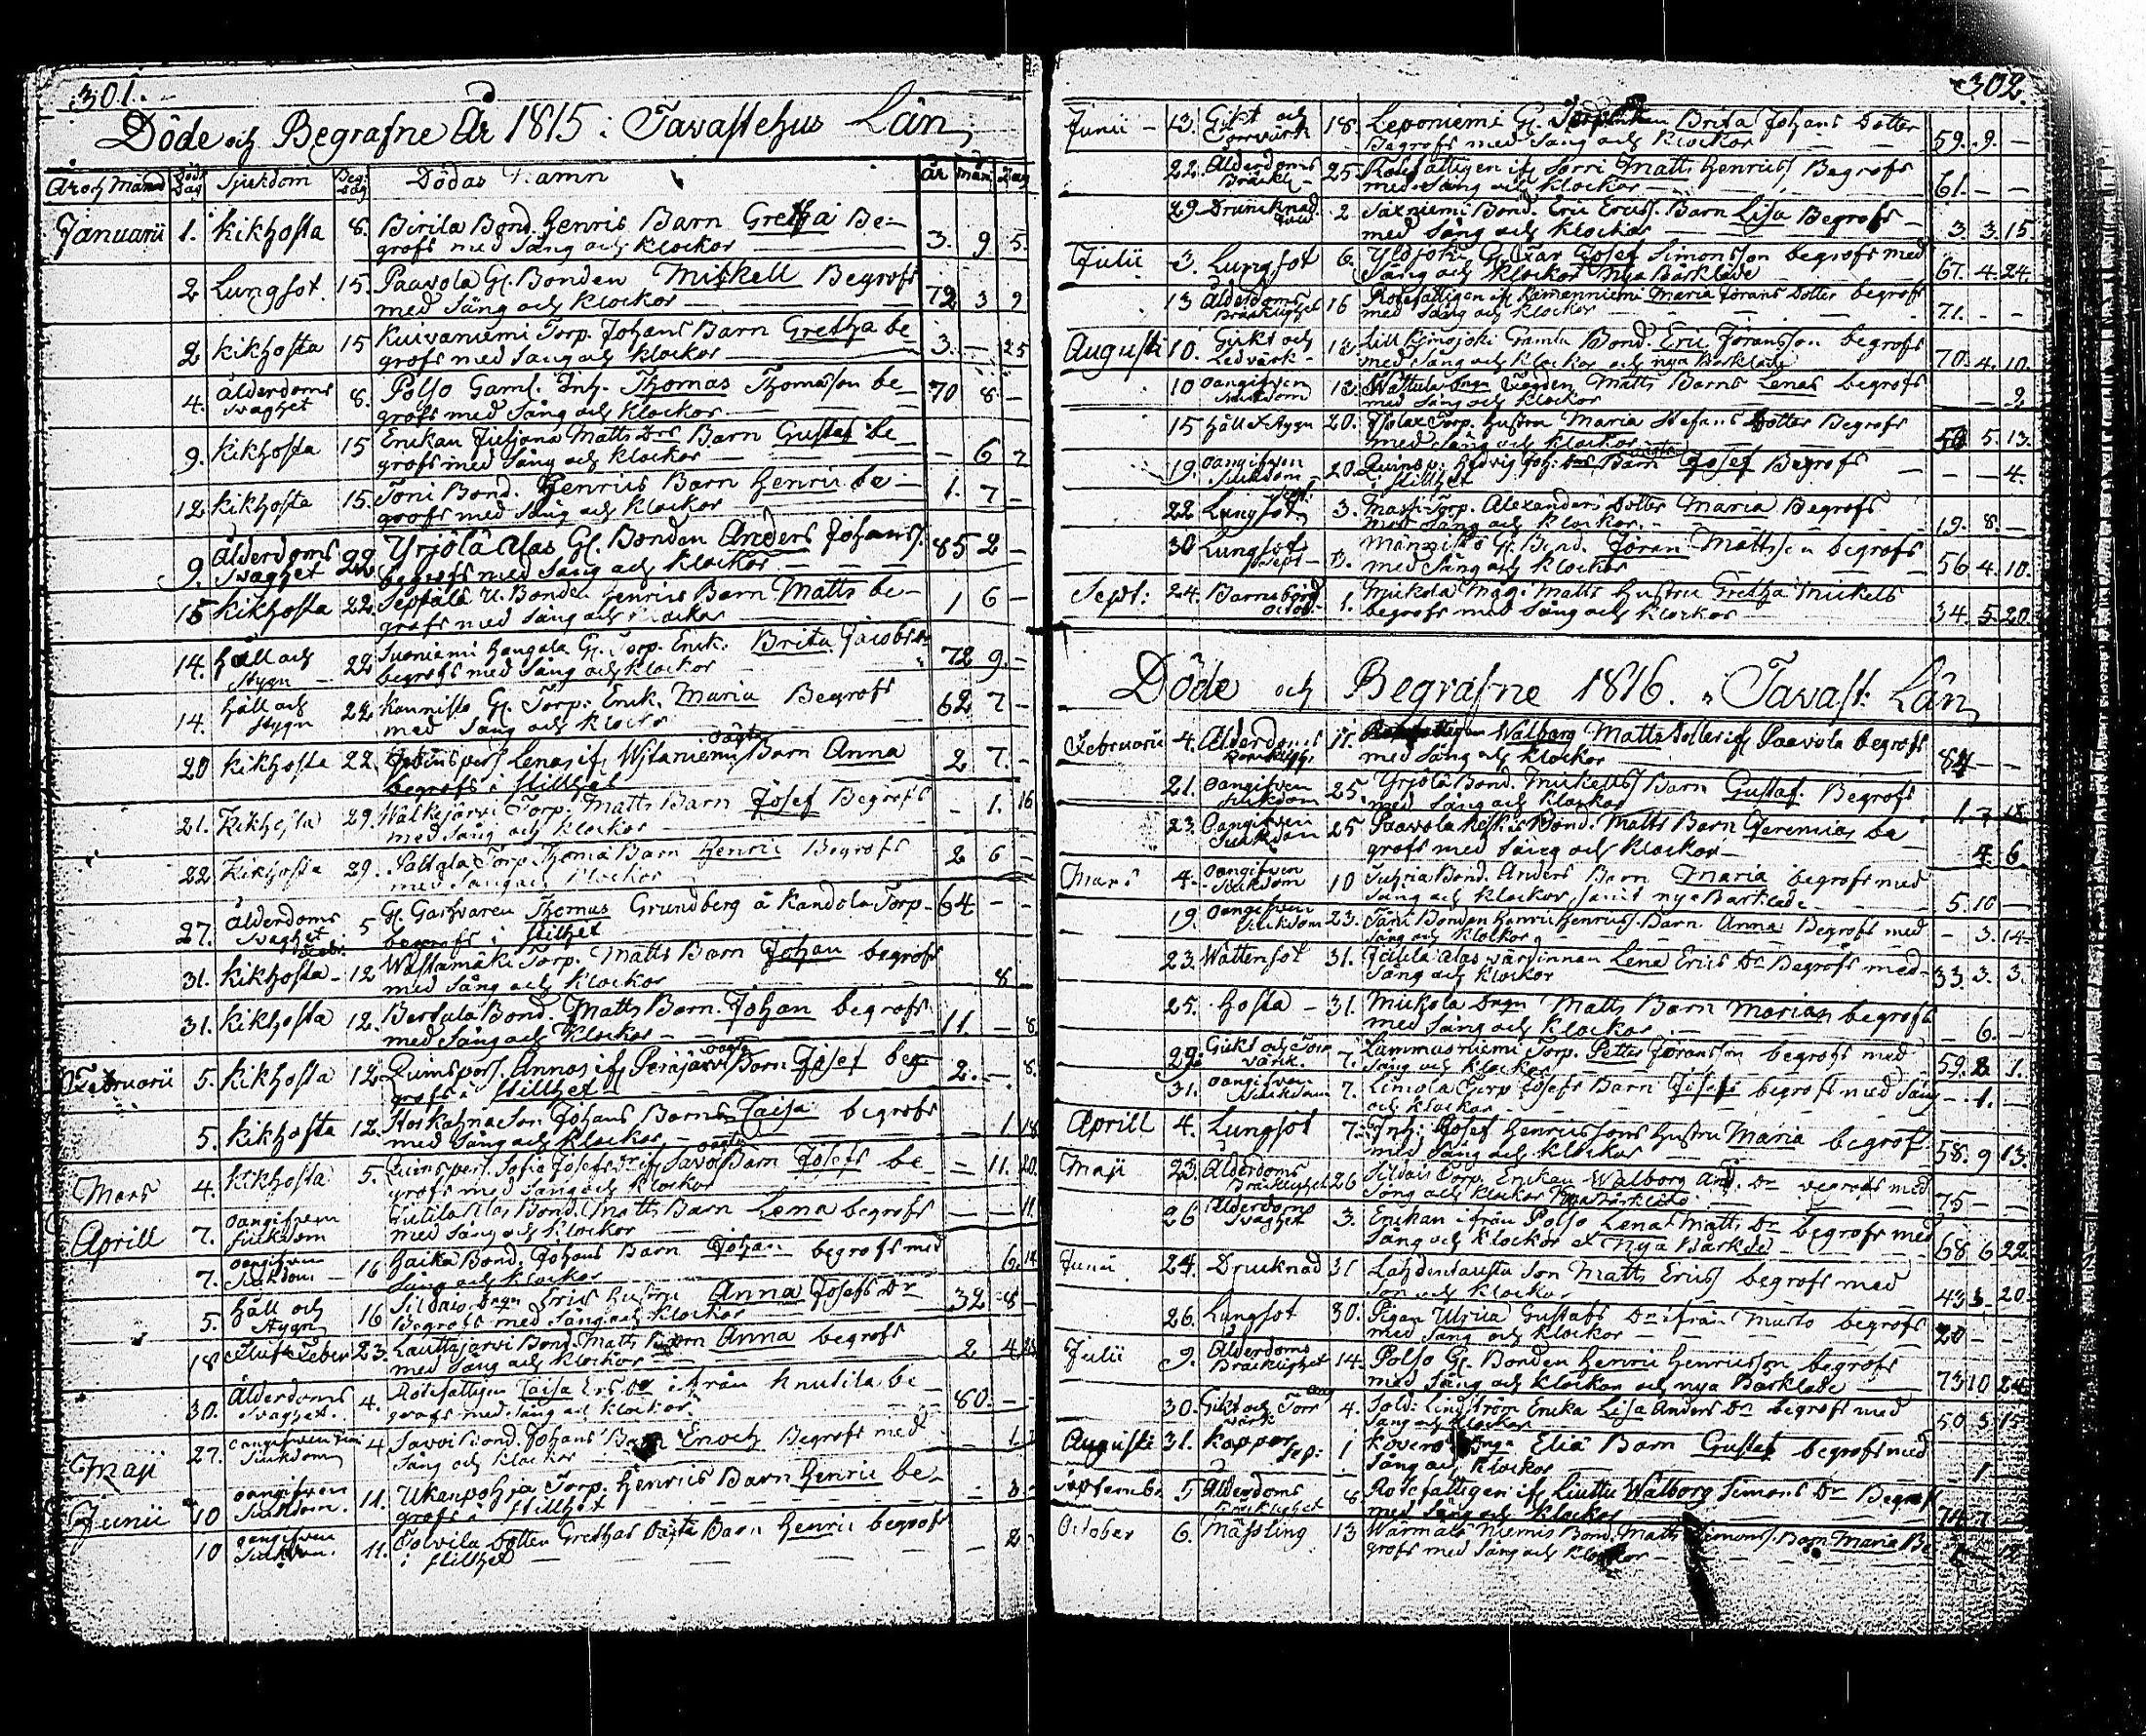 301.
Döde och Begrafne År 1815 i Tavastehus Län
År och Månad Död: Dag Sjukdom Beg: dag Dödas Namn år mån dag
Januarii 1. Kikhosta 8. Birila Bond. Henris Barn Gretha Be-
grofs med Sång och Klockor 3. 9 5.
2 Lungsot. 15. Paavola Gl. Bonden Mickell Begrofs
med Sång och Klockor 72 3 9
2 Kikhosta 15 Kuivaniemi Torp. Johans Barn Gretha be
grofs med Sang och Klockor 3. - 25
4. Ålderdoms Svaghet 8. Polso Gaml. Inh. Thomas Thomasson be
grofs med Sång och Klockor 70 8. -
9. Kikhosta 15 Enckan Matts Drs Barn Gustaf be
grofs med Sång och Klockor - 6 7
12 Kikhosta 15. Toni Bond. Henriis Barn Henric be-
grofs med Sång och Klockor 1. 7 -
9. Ålderdoms Svaghet 22 Yrjölä Alas Gl. Bonden Anders Johanss.
begrofs med Sång och Klockor 85 2 -
15 Kikhosta 22. Seppälä U. Bonden Henriis Barn Matts be-
grofs med Sång och Klockor 1 6 -
14. Håll och Stygn 22 Suoniemi Haugala Gl. Torp. Enck. Brita Jacobs Dr
begrofs med Sång och Klockor 72 9. -
14. Håll och Stygn 22 Kannisto Gl. Torp: Enck. Maria Begrofs
med Sång och Klockor 62 7 -
20 Kikhosta 22. Qvinspers. Lenas if. Wiljaniemi oägta Barn Anna
begrofs i Stillhet 2 7. -
21. Kikhosta 29. Walkejärvi Torp. Matts Barn Josef Begrofs
med Sång och Klockor - 1. 16
22 Kikhosta 29. Torp. Thoma Barn Henric Begrofs
med Sång och Klockor 2 6 -
27. Ålderdoms Svaghet Febr: 5 Gl. Garfvaren Thomas Grundberg å Kandola Torp
begrofs i Stilhet 64 - -
31. Kikhosta - 12 Wästamäki Torp. Matts Barn Johan begrofs
med Sång och Klockor 8
31. Kikhosta 12. Bertula Bond. Matts Barn Johan begrofs
med Sång och Klockor 11. - 8
Februarii 5. Kikhosta 12 Quinspers. Annas if. Peräjärvi oägta Barn Josef beg-
grofs i Stillhet 2. - 8.
5. Kikhosta 12. Son Johans Barn Caisa begrofs
med Sång och Klockor - 1 18
Mars 4. Kikhosta 5. Quinspers. Sofia Josefs Dr if. Savo oägta Barn Josefs be
grofs med Sång och Klockor - 11. 20.
Aprill 7. Oangifven Siukdom Alas Bond. Matts Barn Lena begrofs
med Sång och Klockor - - 11.
7. Oangifven Siukdom 16 Haika Bond. Johans Barn Johan begrofs med
Sång och Klockor 6. 14
5. Håll och Stygn 16 Sildais Eriks Hustru Anna Josefs Dr
Begrofs med Sång och Klockor 32 8 -
18 feber 23. Lauttajärvi Bond. Matts Barn Anna begrofs
med Sång och Klockor 2 4
30. Ålderdoms Svaghet. 4. Rotefattigen Caisa Ers Dr ifrån Knutila be
grofs med Sång och Klockor. 80. - -
Maji 27. oangifven Siukdom 4 Savoi Bond. Johans Barn Enoch Begrofs med
Sång och Klockor 1.
Junii 10 oangifven Siukdom. 11. Ukanpohja Torp. Henriis Barn Henric be-
grofs i Stillhet 3.
10 oangifven Siukdom. 11. Tolvila Dotter Grethas oägta Barn Henric begrofs
i Stillhet - 2
302.
Junii - 13. Gikt och Torrvärk 18. Leponiemi Gl. Brita Johans Dotter
Begrofs med Sång och Klockor 59. 9. -
22. Ålderdoms Bräckl. 25. Rotefattigen if. Sorri Matts Henrics. Begrofs
med Sång och Klockor 61. - -
29 Druncknad 2 Säxniemi Bond. Eric Erics. Barn Lisa Begrofs
med Sång och Klockor 3. 3. 15.
Julii 3. Lungsot 6. Josef Simonsson begrofs med
Sång och Klockor Nya Bårkläde 67. 4. 24.
13 Ålderdoms Bräcklighet 16 Rotefattigen if. Hämenniemi Maria Jörans Dotter begrofs
med Sång och Klockor 71. - -
Augusti 10. Gickt och Ledvärk - 13. Lill Kimojoki Gamla Bond. Eric Jöransson begrofs
med Sång och Klockor och nya Bårkläde 70. 4. 10.
10 oangifven Siukdom 13. Wattula Matts Barn Lenas begrofs
med Sång och Klockor - 9
15 Håll & Stygn 20. Torp. Hustru Maria Stefans Dotter Begrofs
med Sång och Klockor 50 5. 13.
19. oangifven Siukdom 20. Quinsp. Hedvig Joh: Drs oägta Barn Josef Begrofs
i Stillhet - - 4.
22 Lungsot Sept: 3. Torp. Alexanders Dotter Maria Begrofs
med Sång och Klockor. 19. 8. -
30 Lungsot Sept - 3. Männistö Gl. Bond. Jöran Mattsson begrofs
med Sång och Klockor 56 4. 10.
Sept: 24. Barnsbörd octob: 1. Mickola Matts Hustru Gretha Mickels
begrofs med Sång och Klockor 34. 5. 20.
Döde och Begrafne 1816. i Tavast: Län
Februarii 4. Ålderdoms Bräcklig: 11. Rotefattigen Walborg Matts dotter if. Paavola begrofs
med Sång och Klockor 84 - -
21. oangifven Siukdom 25. Yrjölä Bond. Mickells Barn Gustaf Begrofs
med Sång och Klockor 1. 7 18.
23. Oangifven Siukdom 25 Paavola Bond. Matts Barn Jeremias be
grofs med Sång och Klockor 4 6
Mars 4. oangifven Siukdom 10 Bond. Anders Barn Maria begrofs med
Sång och Klockor samt nya Bårkläde 5. 10 -
19. oangifven Siukdom 23. Bonden Henric Henrics. Barn Anna Begrofs med
Sång och Klockor - 3. 14
23. Wattensot 31. Alas värdinnan Lena Erics Dr Begrofs med
Sång och Klockor 33. 3. 3.
25. Hosta - 31. Mickola Matts Barn Marian begrofs
med Sång och Klockor 6. -
29. Gickt och Torrvärk. 7. Lammasniemi Torp. Petter Jöransson begrofs med
Sång och Klockor 59. 8 1.
31. oangifven Siukdom 7. Limola Torp Josefs Barn Josefs begrofs med Sång
och Klockor - 1. -
Aprill 4. Lungsot 7. Inh: Josef Henricssons Hustru Maria begrof
med Sång och Klockor 58. 9 13.
Maji 23. Ålderdoms Bräcklighet 26 Sildais Torp. Enckan Walborg And. Dr begrofs med
Sång och Klockor Nya Bårkläde 75 - -
26 Ålderdoms Svaghet 3. Enckan ifrån Polso Lena Matts Dr begrofs med
Sång och Klockor & Nya Bårkläde 68. 6 22.
Junii 24. Drucknad 31 Lahdentausta Son Matts Erics. begrofs med
Son och Klockor 43 3 20.
26. Lungsot 30. Pigan Ulrica Gustafs Dr ifrån Murto begrofs
med Sång och Klockor 20 - -
Julii 9. Ålderdoms Bräcklighet 14. Polso Gl. Bonden Henric Henricsson begrofs
med Sång och Klockor och nya Bårkläde 73 10 24.
30. Gikt och Torrvärk Aug 4. Sold. Lindström Encka Lisa Anders Dr begrofs med
Sång och Klockor 50 3 15
Augusti 31. Koppor Sep: 1 Kovero Eliä Barn Gustaf begrofs med
Sång och Klockor 1
September 5 Ålderdoms Bräcklighet 8. Rotefattigen if. Liuttu Walborg Simons Dr Begrof
med Sång och Klockor 74 7
October 6. Mässling 13 Wärmälä Niemis Bond. Matts Simons. Barn Maria Be
grofs med Sång och Klockor